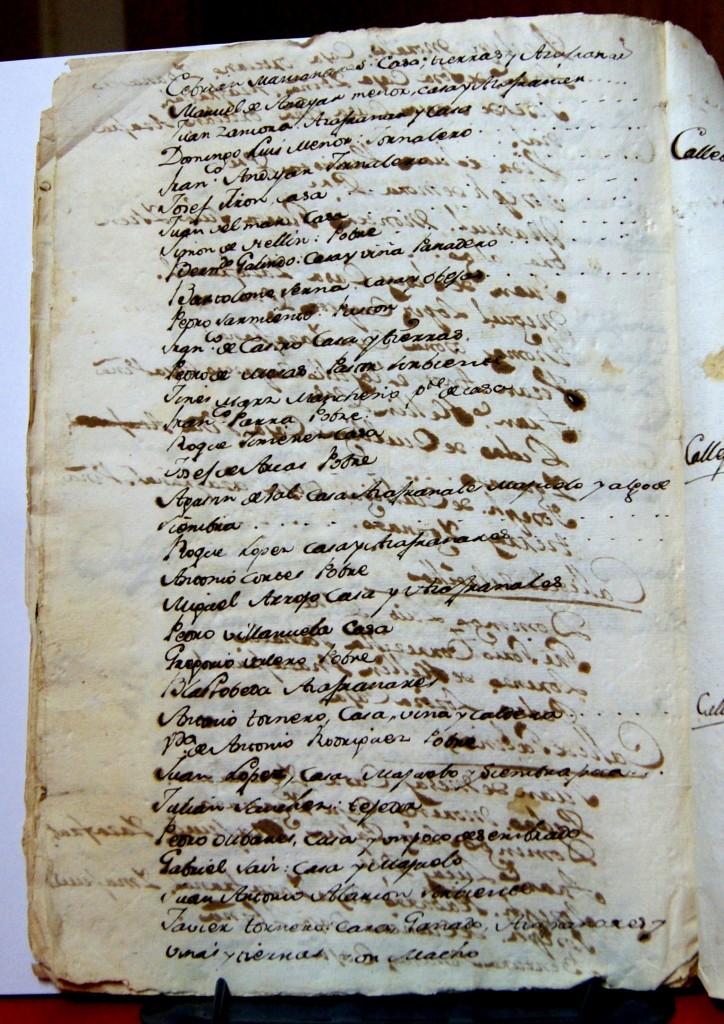 Cebrian Manzanares: Casa, tierras y Azafranar
Manuel de Andujar menor, casa y Azafranar
Juan Zamora, Azafranar y Casa
Domingo Luis Menor: Jornalero
Fran.co Andujar Jornalero
Josef Jiron Casa
Juan Casa
Simon de Hellin: Pobre
Bern.do Galindo: Casa y viña Panadero
Bartolome Serna Casa y Obejas
Pedro Sarmiento Pastor
Fran.co de Castro Casa y tierras
Pedro de Mesas Pastor Sirbiente
Jines Mancheño de casa
Fran.co Parra Pobre
Roque Jimenez Casa
Josef de Arcas Pobre
Agustin de Sal. Casa Azafranales Majuelo y algo de
siembra
Roque Lopez Casa y Azafranares
Antonio Cortes Pobre
Miguel Arrojo Casa y Azafranales
Pedro Villanueba Casa
Gregorio Pobre
Blas Pobeda Azafranares
Antonio tornero, Casa, viña y Caldera
V.da de Antonio Rodriguez Pobre
Juan Lopez, Casa Majuelo y Siembra
Julian Sanchez: tejedor
Pedro Casa y un poco de sembrado
Gabriel Saiz: Casa y Majuelo
Juan Antonio Alarcon Sirbiente
Javier tornero: Casa, Ganado, Azafranares y
viñas y tierras con Macho
Calle
Calle
Calle